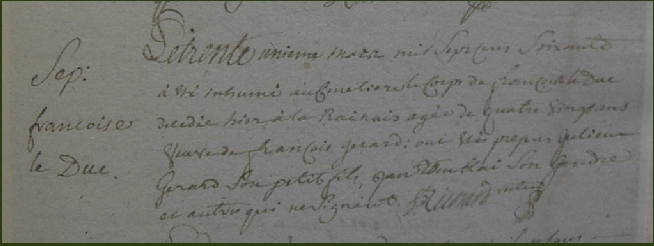 Sep:
francoise
le Duc.
Le trente unieme mars mil Sept cens Soixante
à été inhumé au Cimetiere le Corps de francoise le Duc
decedée hier à la Rairais agée de quatre vingt ans
veuve de francois Gerard: ont étés presens julien
Gerard Son petit fils, jan Son gendre
et autres qui ne Signent.